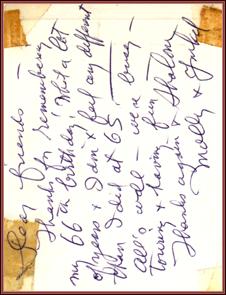 Dear friends —
Thanks for remembering
my 66th birthday! What a lot
of years & I don't feel any different
than I did at 65! —— busy —
all's well — we're
touring & having fun
Thanks again & Shalom
Molly &